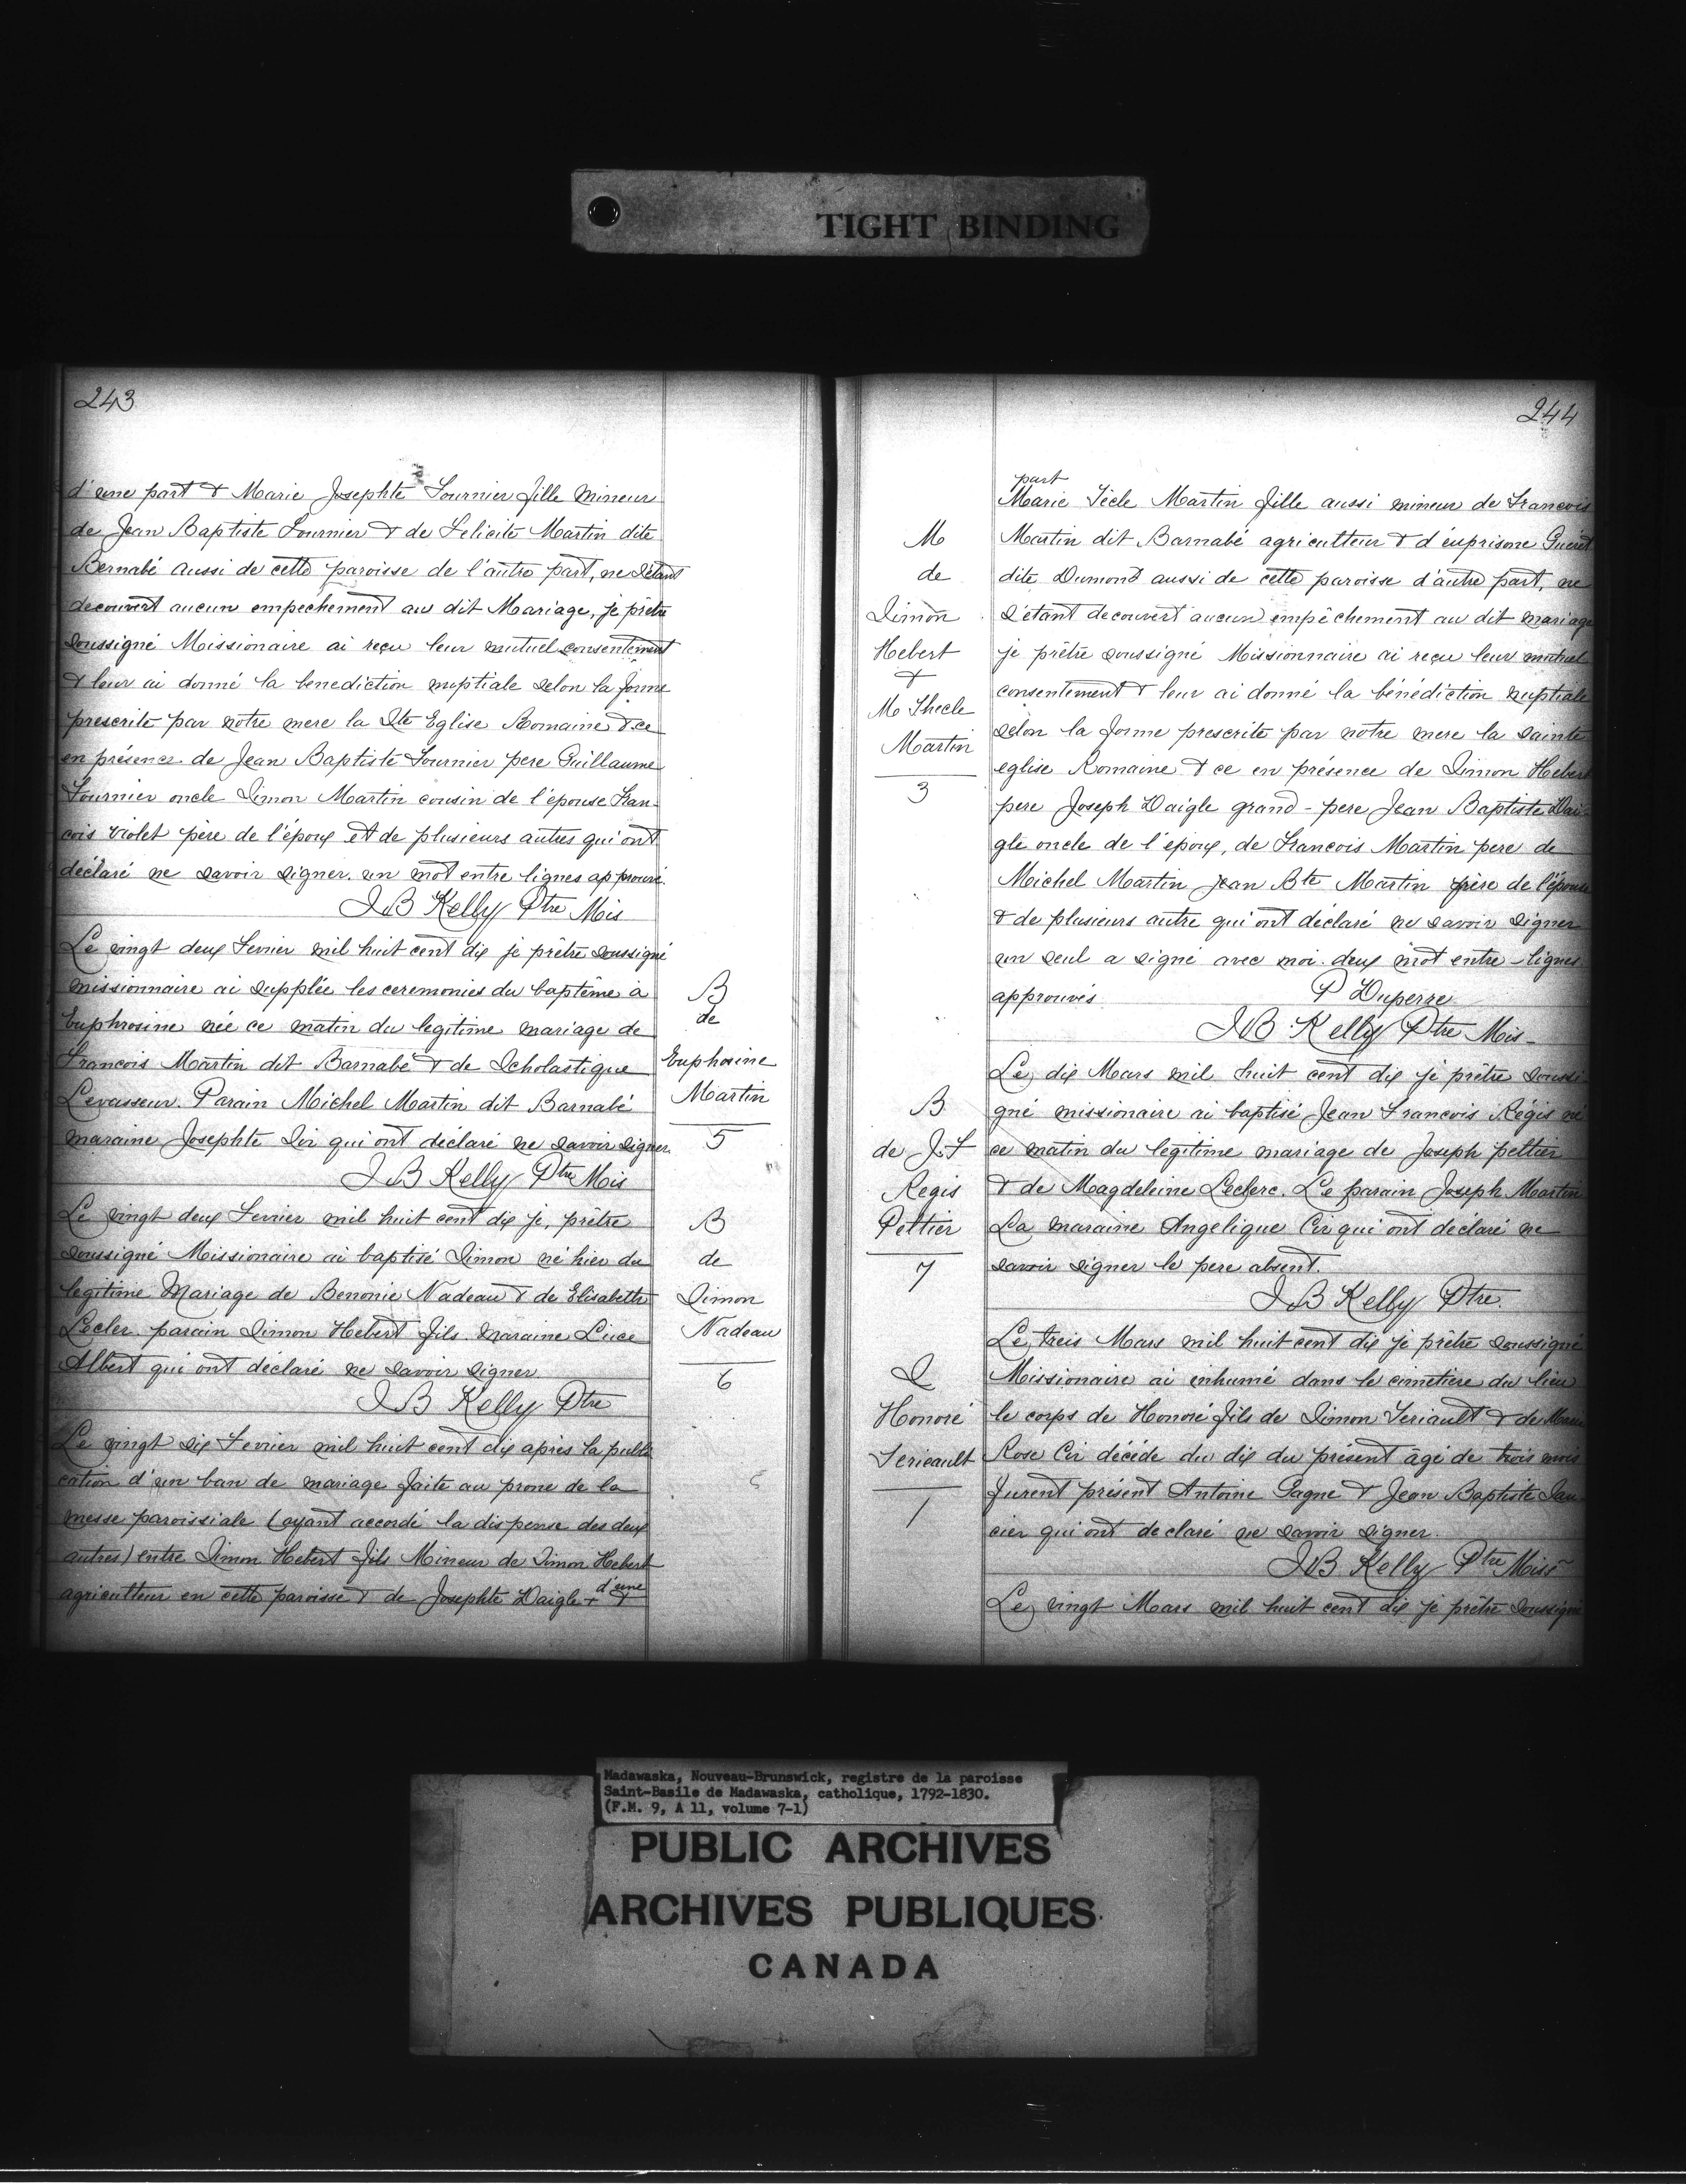 TIGHT BINDING
243
d'une part & Marie Josephte Fournier fille mineur
de Jean Baptiste Fournier & de Felicite Martin dite
Bernabé aussi de cette paroisse de l'autre part, ne s'étant
decouvert aucun empechement au dit Mariage, je prêtre
soussigné Missionaire ai reçu leur mutuel consentement
& leur ai donné la benediction nuptiale selon la forme
prescrite par notre mere la Ste Eglise Romaine & ce
en présence de Jean Baptiste Fournier pere Guillaume
Fournier oncle Simon Martin cousin de l'épouse Fran-
cois Violet père de l'époux et de plusieurs autres qui ont
déclaré ne savoir signer. un mot entre lignes approuvé.
J B Kelly Ptre Mis
Le vingt deux Fevrier mil huit cent dix je prêtre soussigné
missionnaire ai supplée les ceremonies du baptême à
Euphrosine née ce matin du legitime mariage de
Francois Martin dit Barnabé & de Scholastique
Levasseur. Parain Michel Martin dit Barnabé
maraine Josephte Sir qui ont déclaré ne savoir signer.
J B Kelly Ptre Mis
B
de
Euphosine
Martin
5
Le vingt deux Fevrier mil huit cent dix je, prêtre
soussigné Missionaire ai baptisé Simon né hier du
legitime Mariage de Benonie Nadeau & de Elisabeth
Lecler. parain Simon Hebert fils. maraine Luce
Albert qui ont déclaré ne savoir signer
J B Kelly Ptre
B
de
Simon
Nadeau
6
Le vingt six Fevrier mil huit cent dix après la publi
cation d'un ban de mariage faite au prone de la
messe paroissiale (ayant accordé la dispense des deux
autres) entre Simon Hebert fils Mineur de Simon Hebert
agriculteur en cette paroisse & de Josephte Daigle + d'une &
244
part
Marie Tècle Martin fille aussi mineur de Francois
Martin dit Barnabé agriculteur & d'euprisone Gueret
dite Dumond aussi de cette paroisse d'autre part, ne
s'étant decouvert aucun empêchement au dit mariage
je prêtre soussigné Missionnaire ai reçu leur mutuel
consentement & leur ai donné la bénédiction nuptiale
selon la forme prescrite par notre mere la sainte
eglise Romaine & ce en présence de Simon Hebert
pere Joseph Daigle grand-pere Jean Baptiste Dai-
gle oncle de l'époux, de Francois Martin pere de
Michel Martin Jean Bte Martin frère de l'épouse
& de plusieurs autre qui ont déclaré ne savoir signer
un seul a signé avec moi. deux mot entre-lignes
approuvés P Duperre
J B Kelly Ptre Mis-
M
de
Simon
Hebert
&
M Thecle
Martin
3
Le dix Mars mil huit cent dix je prêtre soussi
gné missionaire ai baptisé Jean Francois Régis né
ce matin du légitime mariage de Joseph peltier
& de Magdeleine Leclerc. Le parain Joseph Martin
La maraine Angelique Cir qui ont déclaré ne
savoir signer le pere absent.
J B Kelly Ptre.
B
de J.F
Regis
Peltier
7
Le treis Mars mil huit cent dix je prêtre soussigné
Missionaire ai inhumé dans le cimetiere du lieu
le corps de Honoré fils de Simon Teriault & de Marie
Rose Cir décéde du dix du présent âgé de trois mois
furent présent Antoine Gagne & Jean Baptiste San
cier qui ont declaré ne savoir signer.
J B Kelly Ptre Miss
S
Honoré
Tericault
1
Le vingt Mars mil huit cent dix je prêtre soussigné
Madawaska, Nouveau-Brunswick, registre de la paroisse
Saint-Basile de Madawaska, catholique, 1792-1830.
(F.M. 9, A 11, volume 7-1)
PUBLIC ARCHIVES
ARCHIVES PUBLIQUES
CANADA